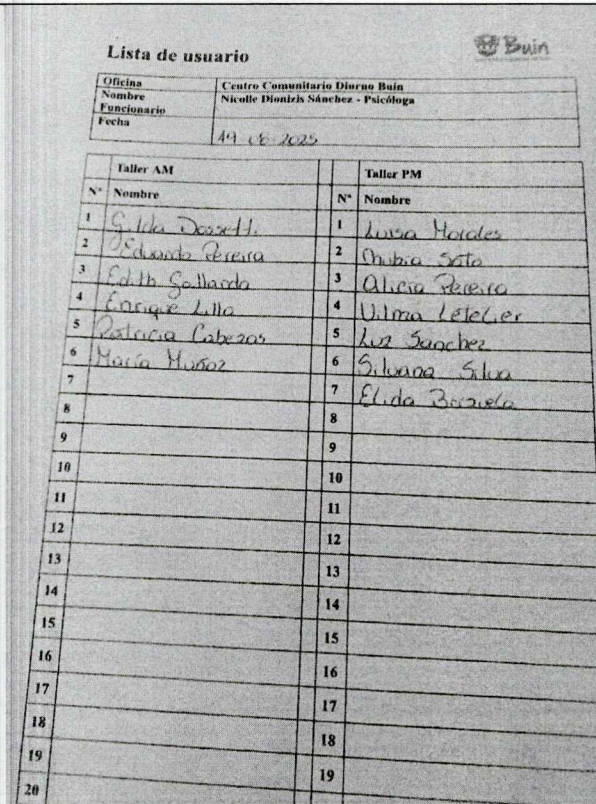 Buin
Lista de usuario
Oficina Centro Comunitario Diurno Buin
Nombre Nicolle Dionizis Sánchez - Psicóloga
Funcionario
Fecha 19-06-2025
Taller AM Taller PM
N° Nombre N° Nombre
1 Gilda 1 Luisa Morales
2 Eduardo Pereira 2 Soto
3 Edith Gallardo 3 Alicia Pereira
4 Enrique Lillo 4 Vilma Letelier
5 Patricia Cabezas 5 Luz Sanchez
6 María Muñoz 6 Silvana Silva
7 7 Elida
8 8
9 9
10 10
11 11
12 12
13 13
14 14
15 15
16 16
17 17
18 18
19 19
20